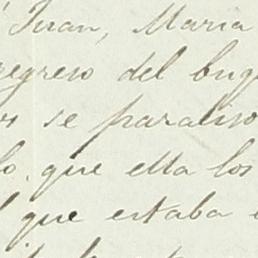 Juan, Maria
regreso del buq
se paraliso
lo, que ella los
que estaba e